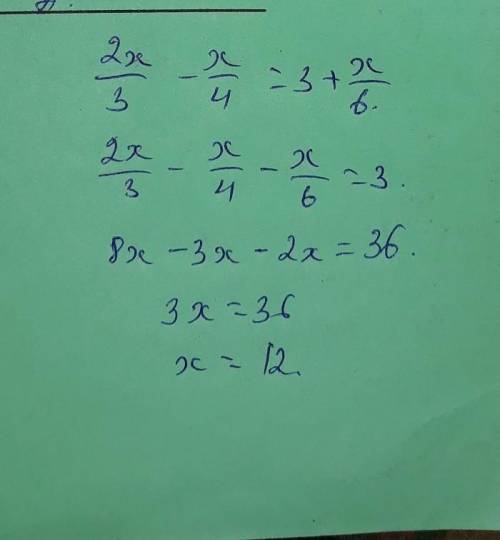 2x/3 - x/4 = 3 + x/6.
2x/3 - x/4 - x/6 = 3.
8x - 3x - 2x = 36.
3x = 36
x = 12.